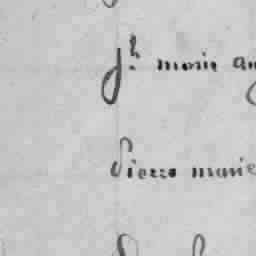 Jh marie
Pierre marie